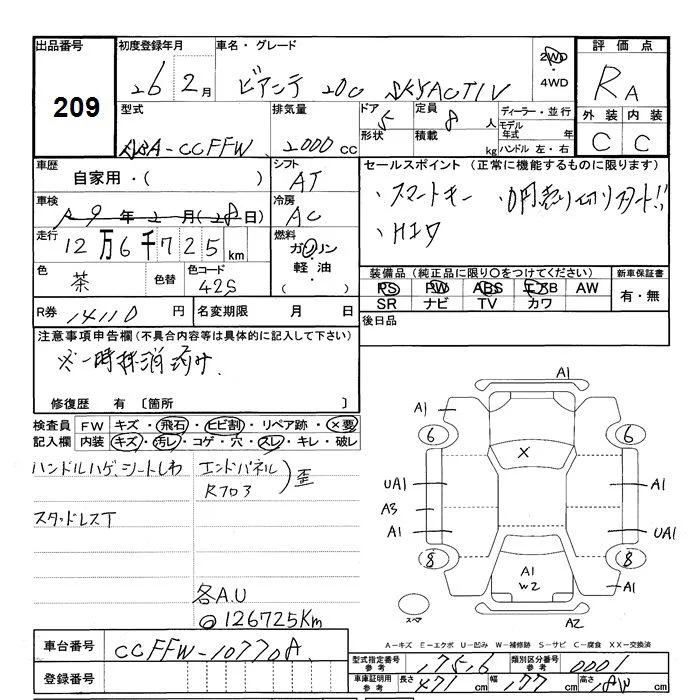 出品番号
209
初度登録年月
26 2月
車名・グレード
ビアンテ 20C SKYACTIV
2WD
・
4WD
評価点
RA
外装 内装
C C
型式
ABA-CCFFW
排気量
2000 cc
ドア
5
形状
定員
8 人
積載
kg
ディーラー・並行
モデル
年式 年
ハンドル 左・右
車歴
自家用・( )
シフト
AT
セールスポイント(正常に機能するものに限ります)
・スマートキー ・0円売り切りスタート!!
・HID
車検
R9年2月(28日)
冷房
AC
走行
12万6千725km
燃料
ガソリン
・
軽油・
( )
色
茶
色替
色コード
42S
装備品(純正品に限り○をつけてください)
PS PW ABS エアB AW
SR ナビ TV カワ
新車保証書
有・無
R券
14110円
名変期限 月 日
後日品
注意事項申告欄(不具合内容等は具体的に記入して下さい)
※一時抹消済み.
修復歴 有〔箇所 〕
検査員
記入欄
FW キズ・飛石・ヒビ割・リペア跡・×要
内装 キズ・汚レ・コゲ・穴・スレ・キレ・破レ
ハンドルハゲ、シートしわ
スタッドレスT
エンドパネル
R703
)歪
各A.U
@126725Km
A1
A1
6 6
X
UA1
A3
A1
A1
UA1
8 8
A1
W2
A1
スペア
A2
A-キズ E-エクボ U-凹み W-補修跡 S-サビ C-腐食 XX-交換済
車台番号
CCFFW-107708
登録番号
型式指定番号
参考
17516
類別区分番号
参考
0001
車庫証明用
参考
長さ
471 cm
幅
177 cm
高さ
18W cm